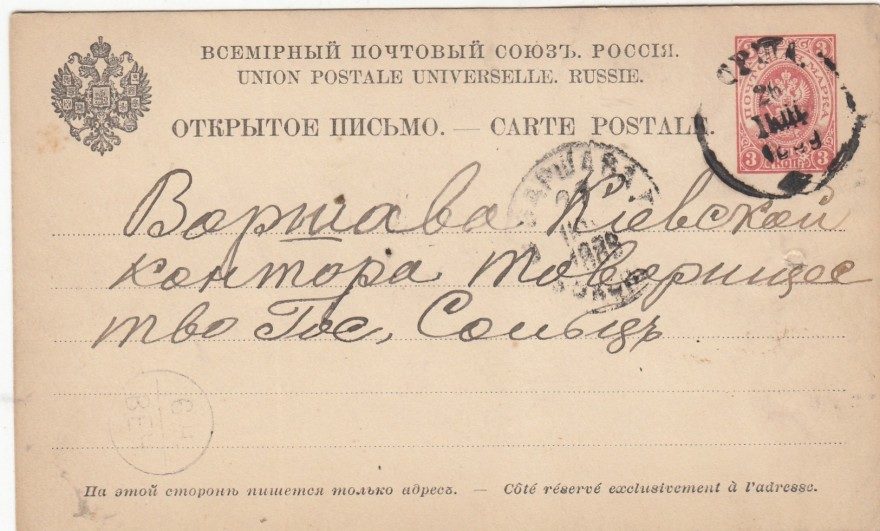 ВСЕМІРНЫЙ ПОЧТОВЫЙ СОЮЗЪ. РОССІЯ.
UNION POSTALE UNIVERSELLE. RUSSIE.
ОТКРЫТОЕ ПИСЬМО. — CARTE POSTALE.
3 3
ПОЧТ МАРКА
3 КОП. 3
ОРША.
26
1889
ВАРШАВА
1889
Воршава Кіевской
контора товарищес
тво Гос, Сольцъ
На этой сторонѣ пишется только адресъ. — Côté réservé exclusivement à l'adresse.